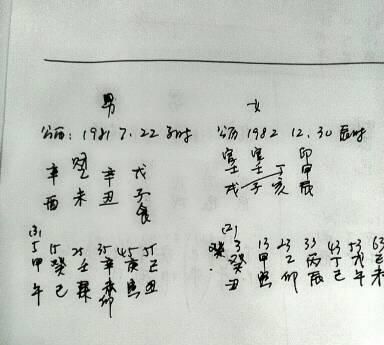 男 女
公历: 1981 7. 22 子时 公历 1982 12. 30 辰时
官 官 印
辛 辛 戊 壬 壬 丁 甲
酉 未 丑 子 戌 子 亥 辰
食
(3) (2)
5 15 25 35 45 55 3 13 23 33 43 53 63
甲 癸 壬 辛 庚 己 癸 甲 乙 丙 丁 戊 己
午 巳 卯 寅 丑 丑 寅 卯 辰 巳 午 未